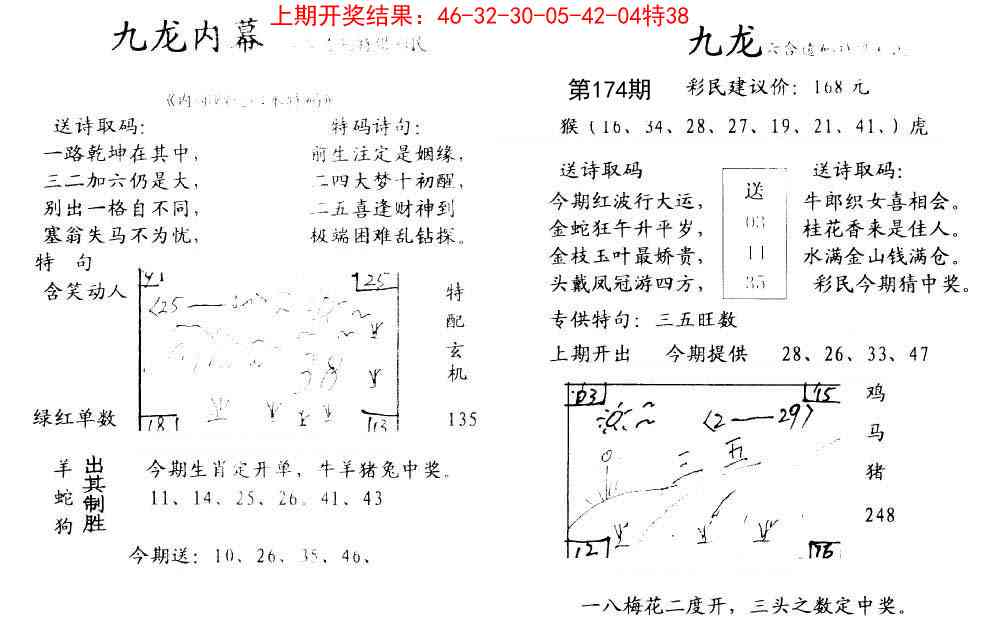 上期开奖结果：46-32-30-05-42-04特38
九龙内幕
送诗取码：
一路乾坤在其中，
三二加六仍是大，
别出一格自不同，
塞翁失马不为忧，
特码诗句：
前生注定是姻缘，
二四大梦十初醒，
二五喜逢财神到
极端困难乱钻探。
特 句
含笑动人
绿红单数
25
(25
38
18
13
特
配
玄
机
135
羊
蛇
狗
出其制胜
今期生肖定开单，牛羊猪兔中奖。
11、14、25、26、41、43
今期送：10、26、35、46、
九龙
第174期
彩民建议价：168元
猴（16、34、28、27、19、21、41、）虎
送诗取码
今期红波行大运，
金蛇狂午升平岁，
金枝玉叶最娇贵，
头戴凤冠游四方，
送
03
11
35
送诗取码：
牛郎织女喜相会。
桂花香来是佳人。
水满金山钱满仓。
彩民今期猜中奖。
专供特句：三五旺数
上期开出 今期提供 28、26、33、47
03
15
(2——29)
三五
12
16
鸡
马
猪
248
一八梅花二度开，三头之数定中奖。